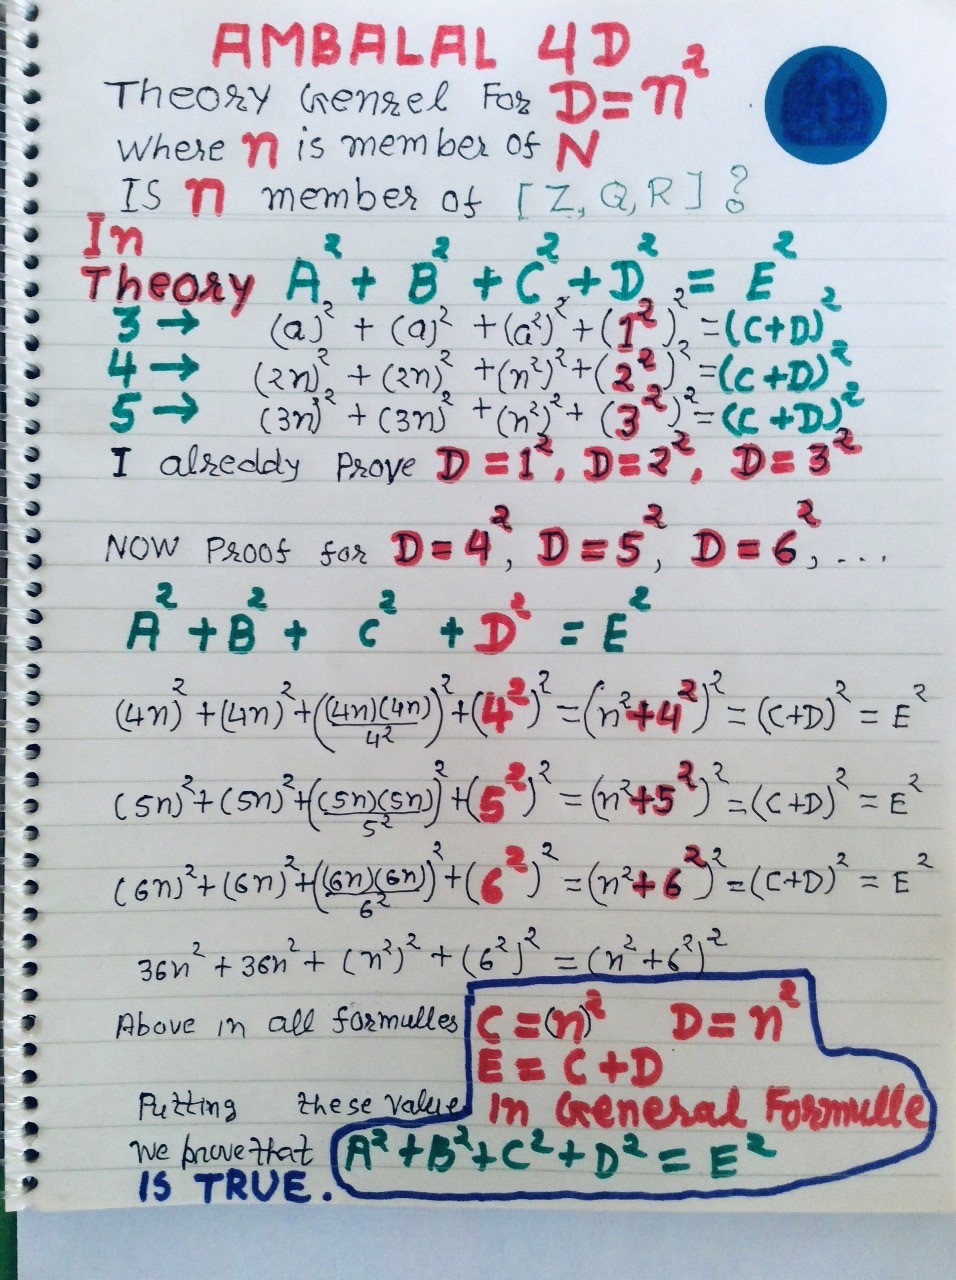 AMBALAL 4D
Theory Genrel For D=n²
Where n is member of N
IS n member of [Z, Q, R] ?
In
Theory A² + B² + C² + D² = E²
3 → (a)² + (a)² + (a²)² + (1²)² = (C+D)²
4 → (2n)² + (2n)² + (n²)² + (2²)² = (C+D)²
5 → (3n)² + (3n)² + (n²)² + (3²)² = (C+D)²
I alreddy Prove D=1², D=2², D=3²
NOW Proof for D=4², D=5², D=6², ...
A² + B² + C² + D² = E²
(4n)² + (4n)² + ((4n)(4n)/4²)² + (4²)² = (n²+4²)² = (C+D)² = E²
(5n)² + (5n)² + ((5n)(5n)/5²)² + (5²)² = (n²+5²)² = (C+D)² = E²
(6n)² + (6n)² + ((6n)(6n)/6²)² + (6²)² = (n²+6²)² = (C+D)² = E²
36n² + 36n² + (n²)² + (6²)² = (n²+6²)²
Above in all formulles C=(n)² D=n²
E = C+D
Putting these value In General Formulle
We prove that A²+B²+C²+D² = E²
IS TRUE.